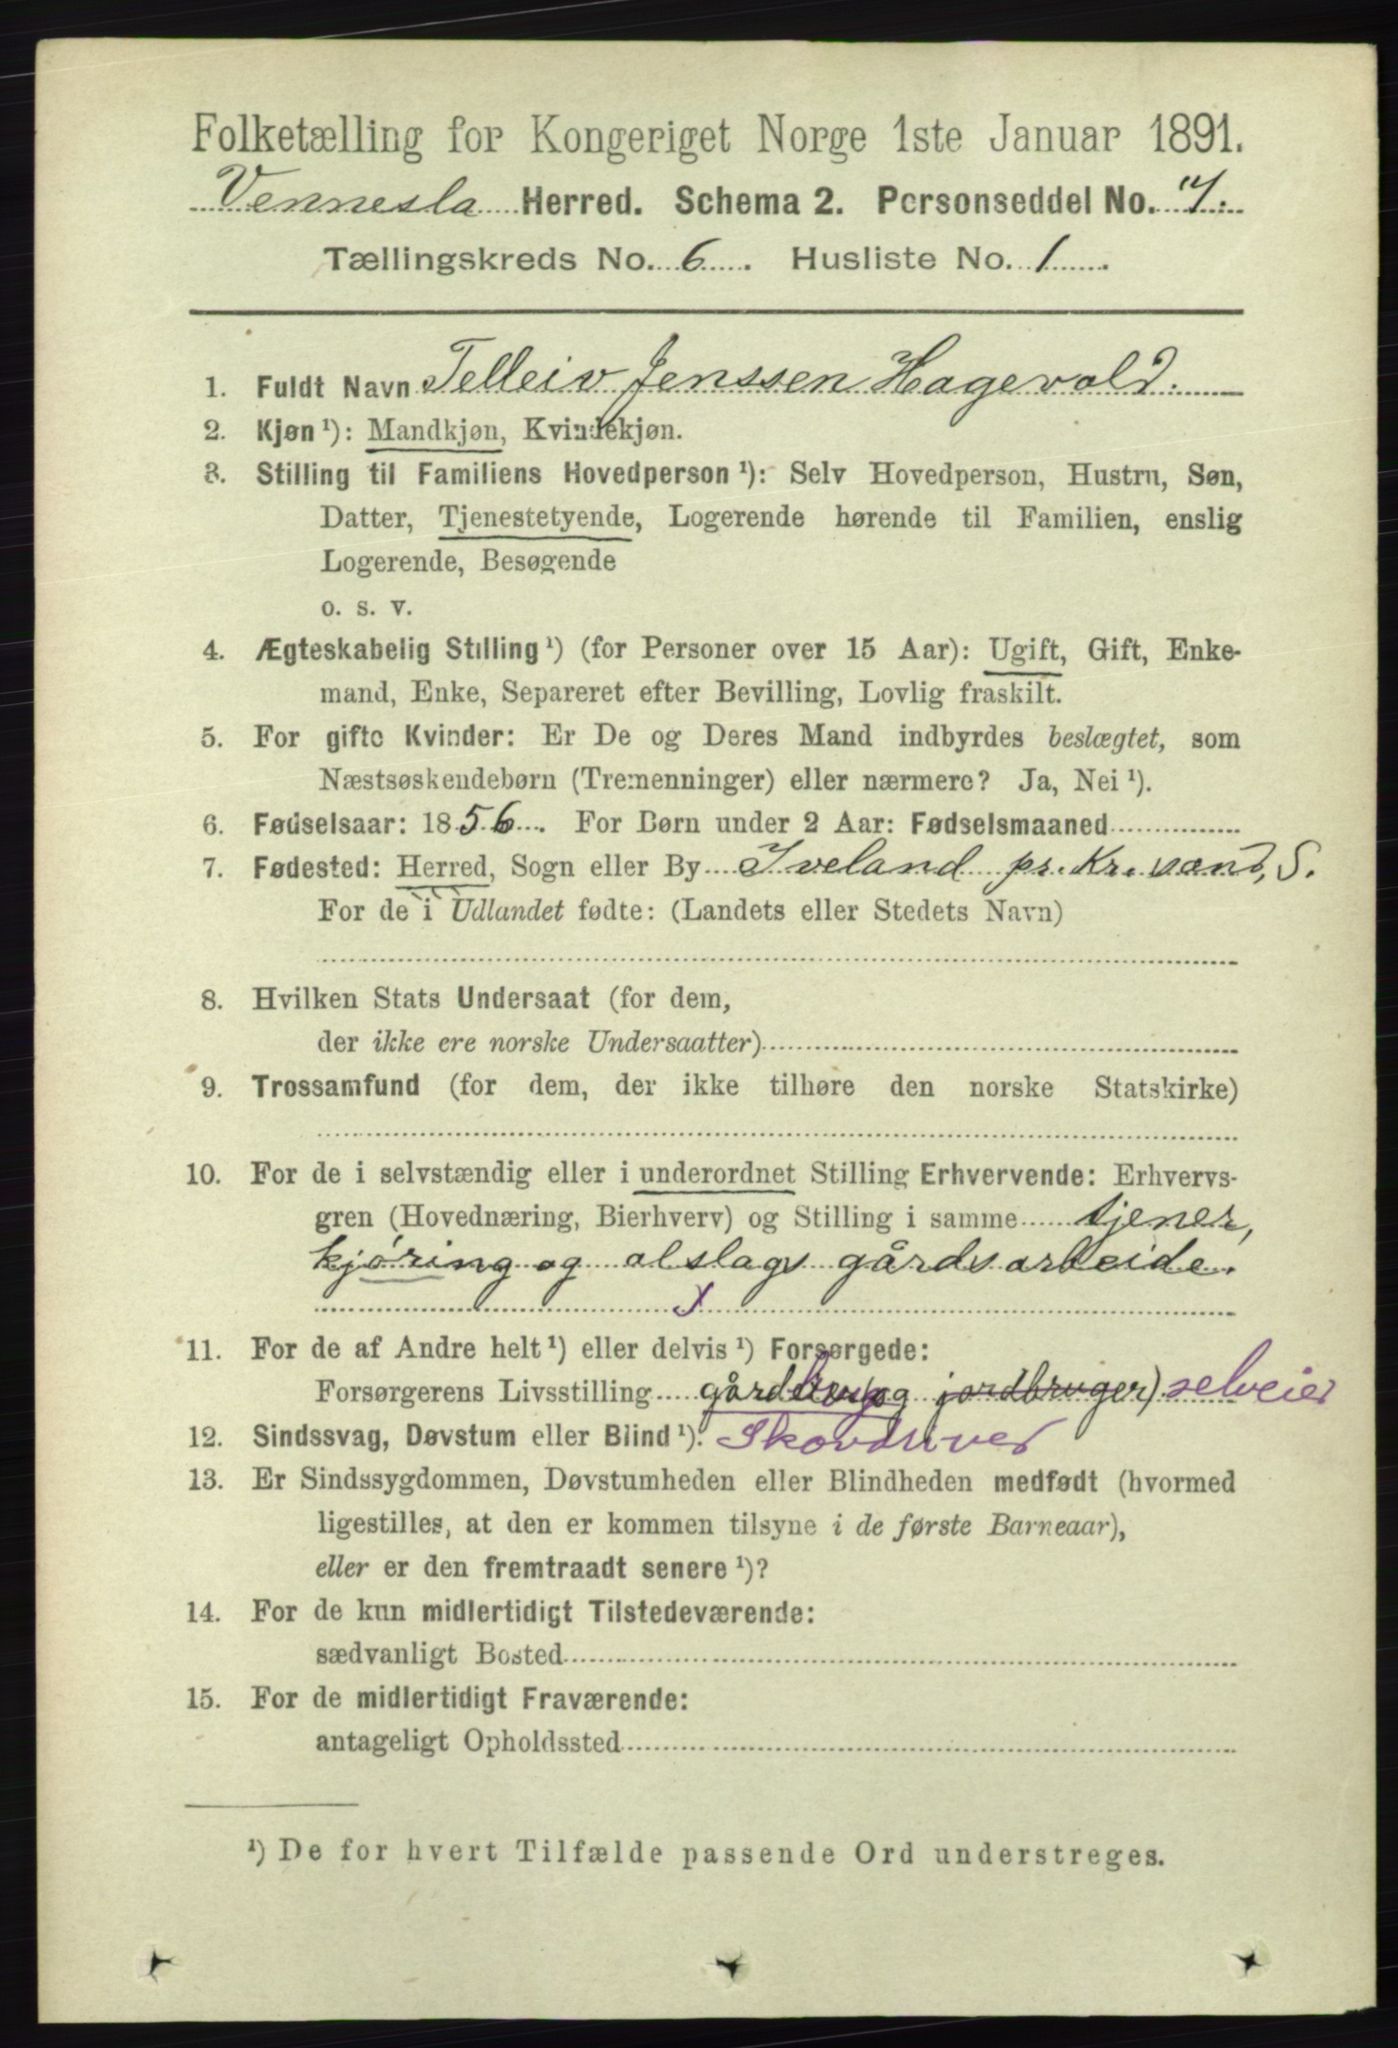 Folketælling for Kongeriget Norge 1ste Januar 1891.
Vennesla Herred. Schema 2. Personseddel No. 7.
Tællingskreds No. 6. Husliste No. 1
1. Fuldt Navn Telleiv Jenssen Hagevold.
2. Kjøn ¹): Mandkjøn, Kvindekjøn.
3. Stilling til Familiens Hovedperson ¹): Selv Hovedperson, Hustru, Søn,
Datter, Tjenestetyende, Logerende hørende til Familien, enslig
Logerende, Besøgende
o. s. v.
4. Ægteskabelig Stilling ¹) (for Personer over 15 Aar): Ugift, Gift, Enke-
mand, Enke, Separeret efter Bevilling, Lovlig fraskilt.
5. For gifte Kvinder: Er De og Deres Mand indbyrdes beslægtet, som
Næstsøskendebørn (Tremenninger) eller nærmere? Ja, Nei ¹).
6. Fødselsaar: 1856. For Børn under 2 Aar: Fødselsmaaned
7. Fødested: Herred, Sogn eller By Iveland pr. Kr. sand, S.
For de i Udlandet fødte: (Landets eller Stedets Navn)
8. Hvilken Stats Undersaat (for dem,
der ikke ere norske Undersaatter)
9. Trossamfund (for dem, der ikke tilhøre den norske Statskirke)
10. For de i selvstændig eller i underordnet Stilling Erhvervende: Erhvervs-
gren (Hovednæring, Bierhverv) og Stilling i samme tjener,
kjöring og alslags gårdsarbeide.
11. For de af Andre helt ¹) eller delvis ¹) Forsørgede:
Forsørgerens Livsstilling og jordbruger) selveier
12. Sindssvag, Døvstum eller Blind ¹). Skovdriver
13. Er Sindssygdommen, Døvstumheden eller Blindheden medfødt (hvormed
ligestilles, at den er kommen tilsyne i de første Barneaar),
eller er den fremtraadt senere ¹)?
14. For de kun midlertidigt Tilstedeværende:
sædvanligt Bosted
15. For de midlertidigt Fraværende:
antageligt Opholdssted
¹) De for hvert Tilfælde passende Ord understreges.